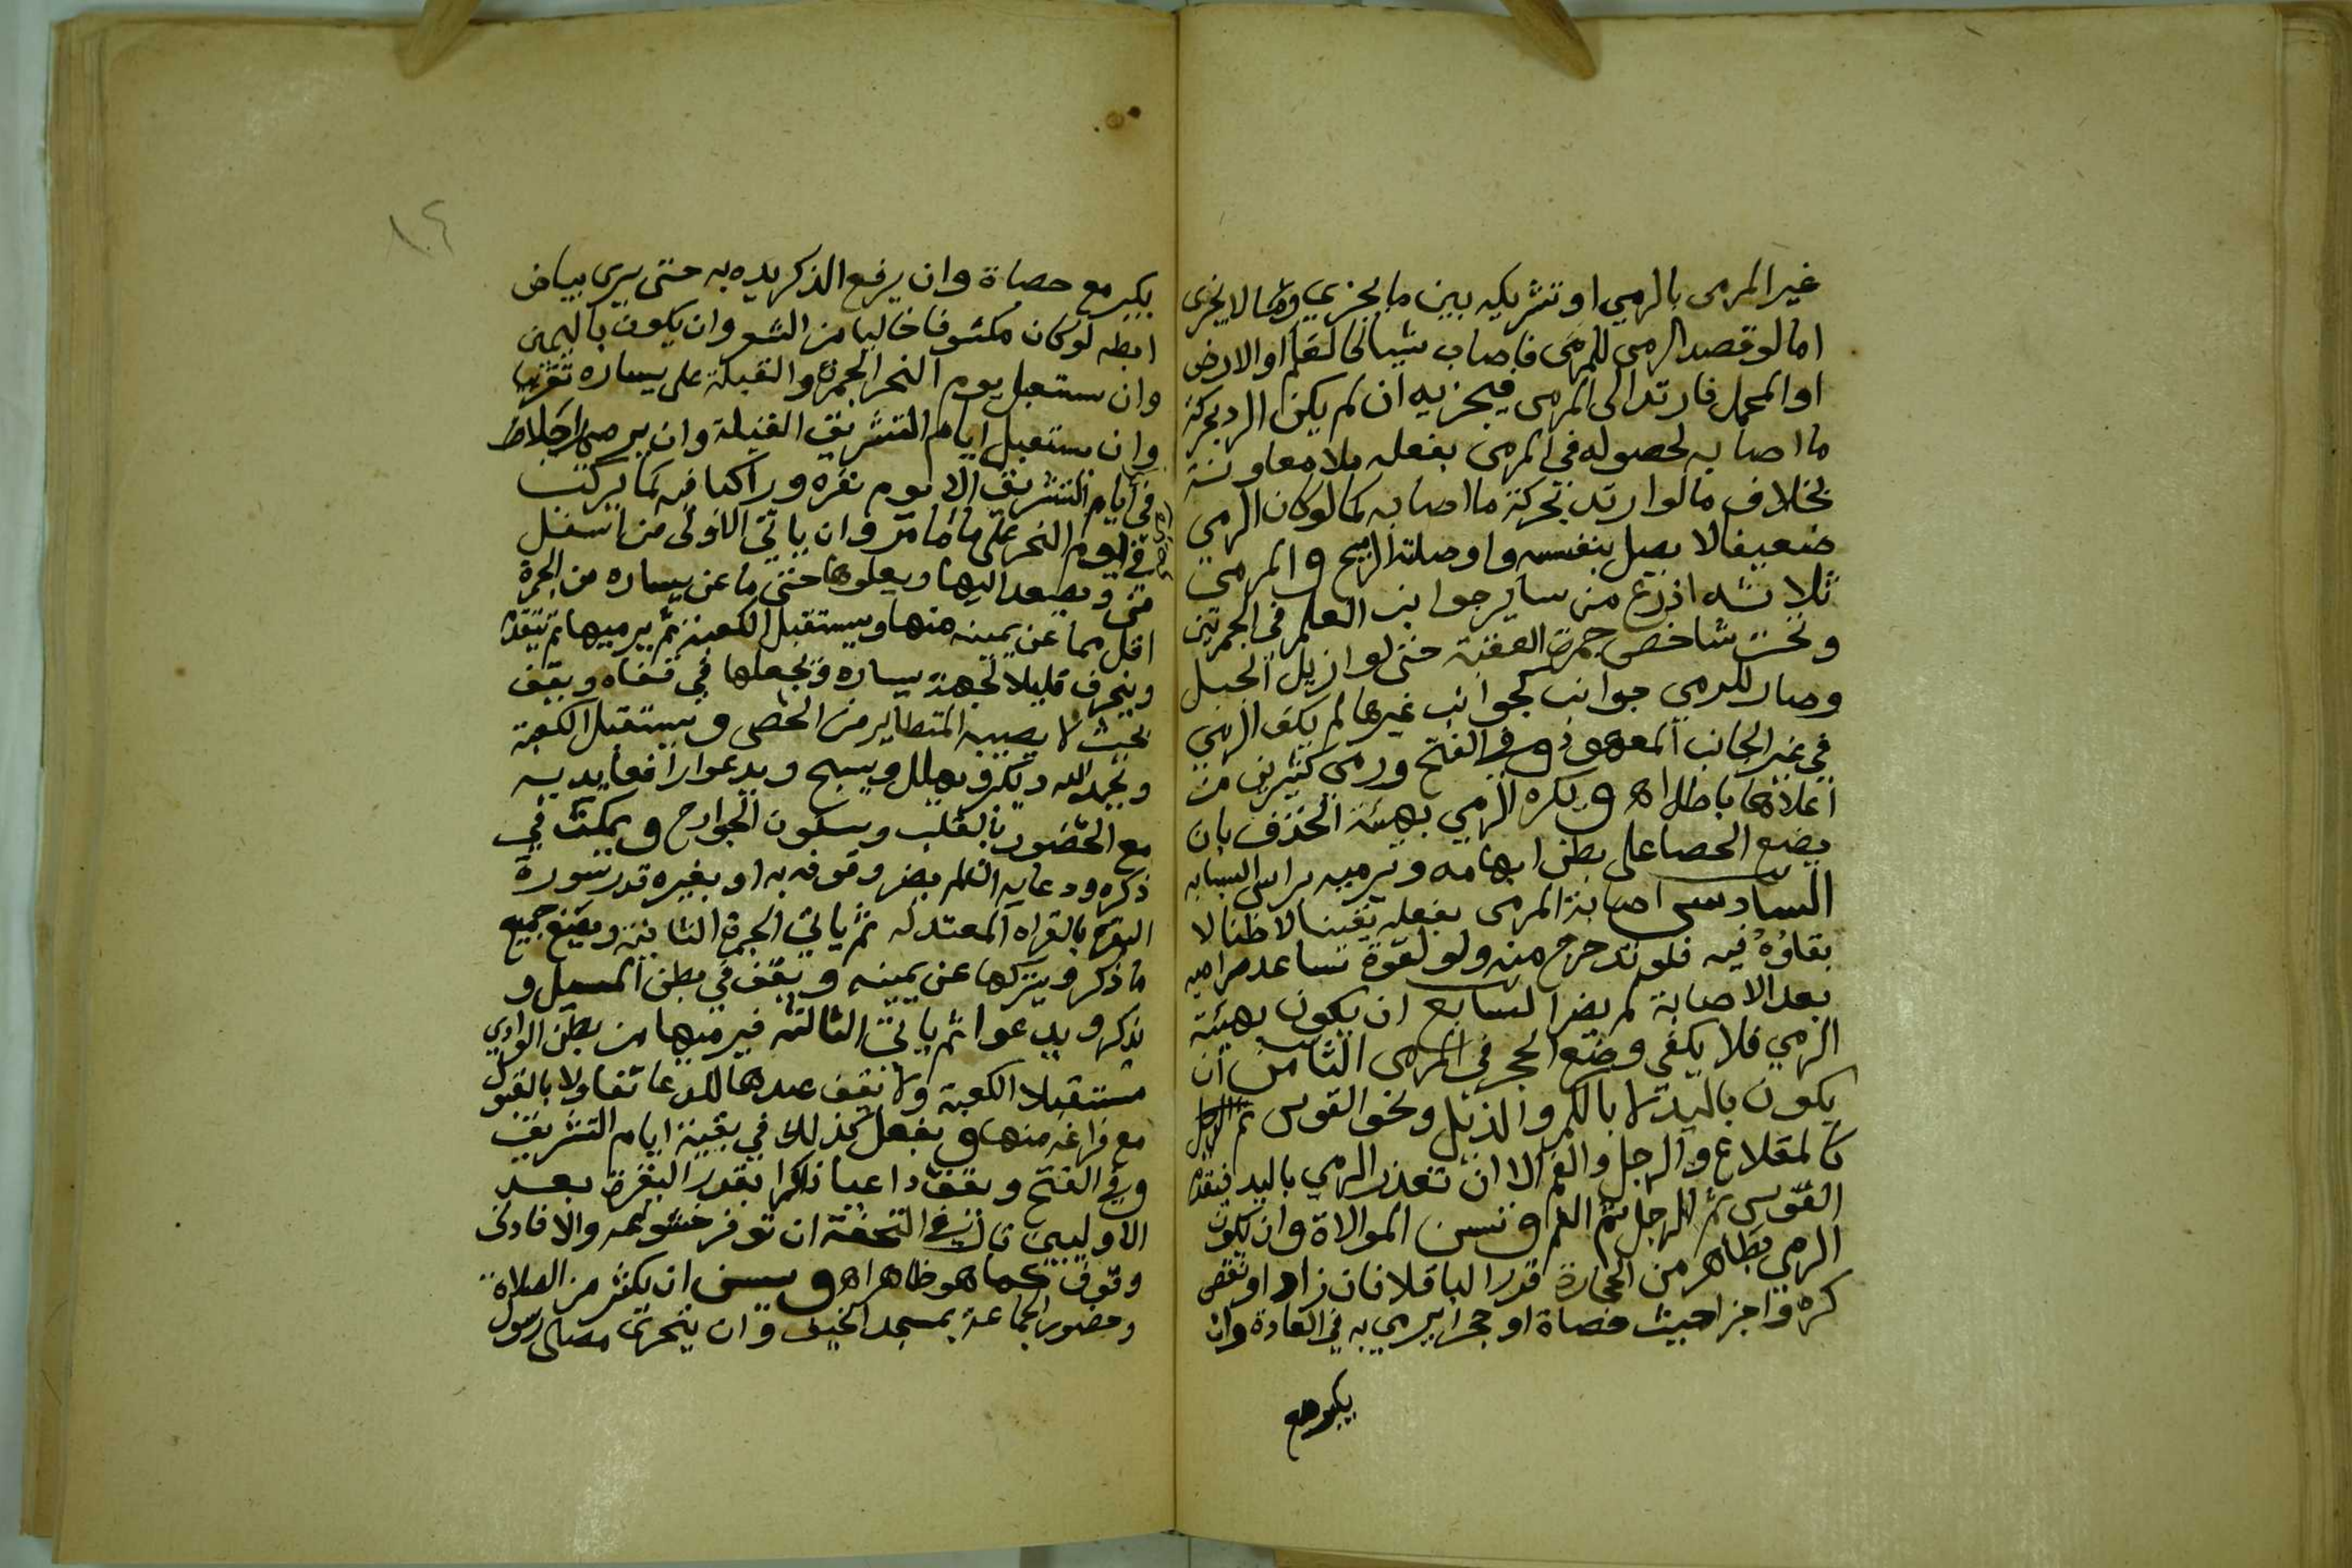 غير المرمى بالرمي او تشريكه بين ما يجزي وما لا يجزي
اما لو قصد الرمى للمرمى فاصاب شيا كالعلم او الارض
او المحمل فارتد الى المرمى فيجزيه ان لم يكن الرد بحركة
ما اصابه لحصوله في المرمى بفعله بلا معاونة
بخلاف ما لو ارتد بحركة ما اصابه كما لو كان الرمي
ضعيفا لا يصل بنفسه واوصلته الريح و المرمى
ثلاثة اذرع من ساير جوانب العلم في الجمرتين
وتحت شاخص جمرة العقبة حتى لو ازيل الجبل
وصار للرمي جوانب كجوانب غيرها لم يكف الرمي
في غير الجانب المعهود وفي الفتح ورمي كثيرين من
اعلاها باطل اه ويكره الرمي بهيئة الخذف بان
يضع الحصا على بطن ابهامه ويرميه براس السبابه
السادس اصابة المرمى بفعله يقينا لا ظنا لا
بقاؤه فيه فلو تدحرج منه ولو لقوة تساعد مراميه
بعد الاصابة لم يضر السابع ان يكون بهيئة
الرمي فلا يكفي وضع الحجر في المرمى الثامن ان
يكون باليد لا بالكم والذيل ونحو القوس
كالمقلاع والرجل والفم الا ان تعذر الرمي باليد فيقدم
القوس ثم الرجل ثم الفم وتسن الموالاة وان يكون
الرمي بطاهر من الحجارة قدر الباقلا فان زاد او نقص
كره واجزا حيث حصاة او حجرا يرمي به في العادة وان
يكبر مع
١٠٤
يكبر مع حصاة وان يرفع الذكر يده به حتى يرى بياض
ابطه لو كان مكشوفا خاليا من الشعر وان يكون باليمين
وان يستقبل يوم النحر الجمرة والقبلة على يساره تقريبا
وان يستقبل ايام التشريق القبلة وان يرمي راجلا
في ايام التشريق الا يوم نفره وراكبا فيه كما يركب
في يوم النحر على ما مر وان ياتي الاولى من اسفل
منى ويصعد اليها ويعلوها حتى ما عن يساره من الجمرة
اقل مما عن يمينه منها ويستقبل الكعبة ثم يرميها ثم يتقدم
وينحرف قليلا لجهة يساره ويجعلها في قفاه ويقف
بحيث لا يصيبه المتطاير من الحصى ويستقبل الكعبة
ويحمد الله ويكبر ويهلل ويسبح ويدعوا رافعا يديه
مع الحضور بالقلب وسكون الجوارح ويمكث في
ذكره ودعايه ان لم يضر وقوفه به او بغيره قدر سورة
البقرة بالقراه المعتدله ثم ياتي الجمرة الثانية ويصنع جميع
ما ذكر ويتركها عن يمينه ويقف في بطن المسيل و
يذكر ويدعوا ثم ياتي الثالثة فيرميها من بطن الوادي
مستقبلا الكعبة ولا يقف عندها للدعا تفاولا بالقبول
مع فراغه منها ويفعل كذلك في بقية ايام التشريق
وفي الفتح ويقف داعيا ذاكرا بقدر البقرة بعد
الاوليين قال في التحفة ان توفر خشوعه والا فادنى
وقوف كما هو ظاهر اه ويسن ان يكثر من الصلاة
وحضور الجماعة بمسجد الخيف وان يتحرى مصلى رسول